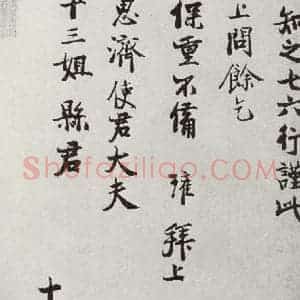 知之七六行謹此
上問餘乞
保重不備 雍 拜上
思濟使君大夫
十三姐縣君
十
Shufaziliao.com